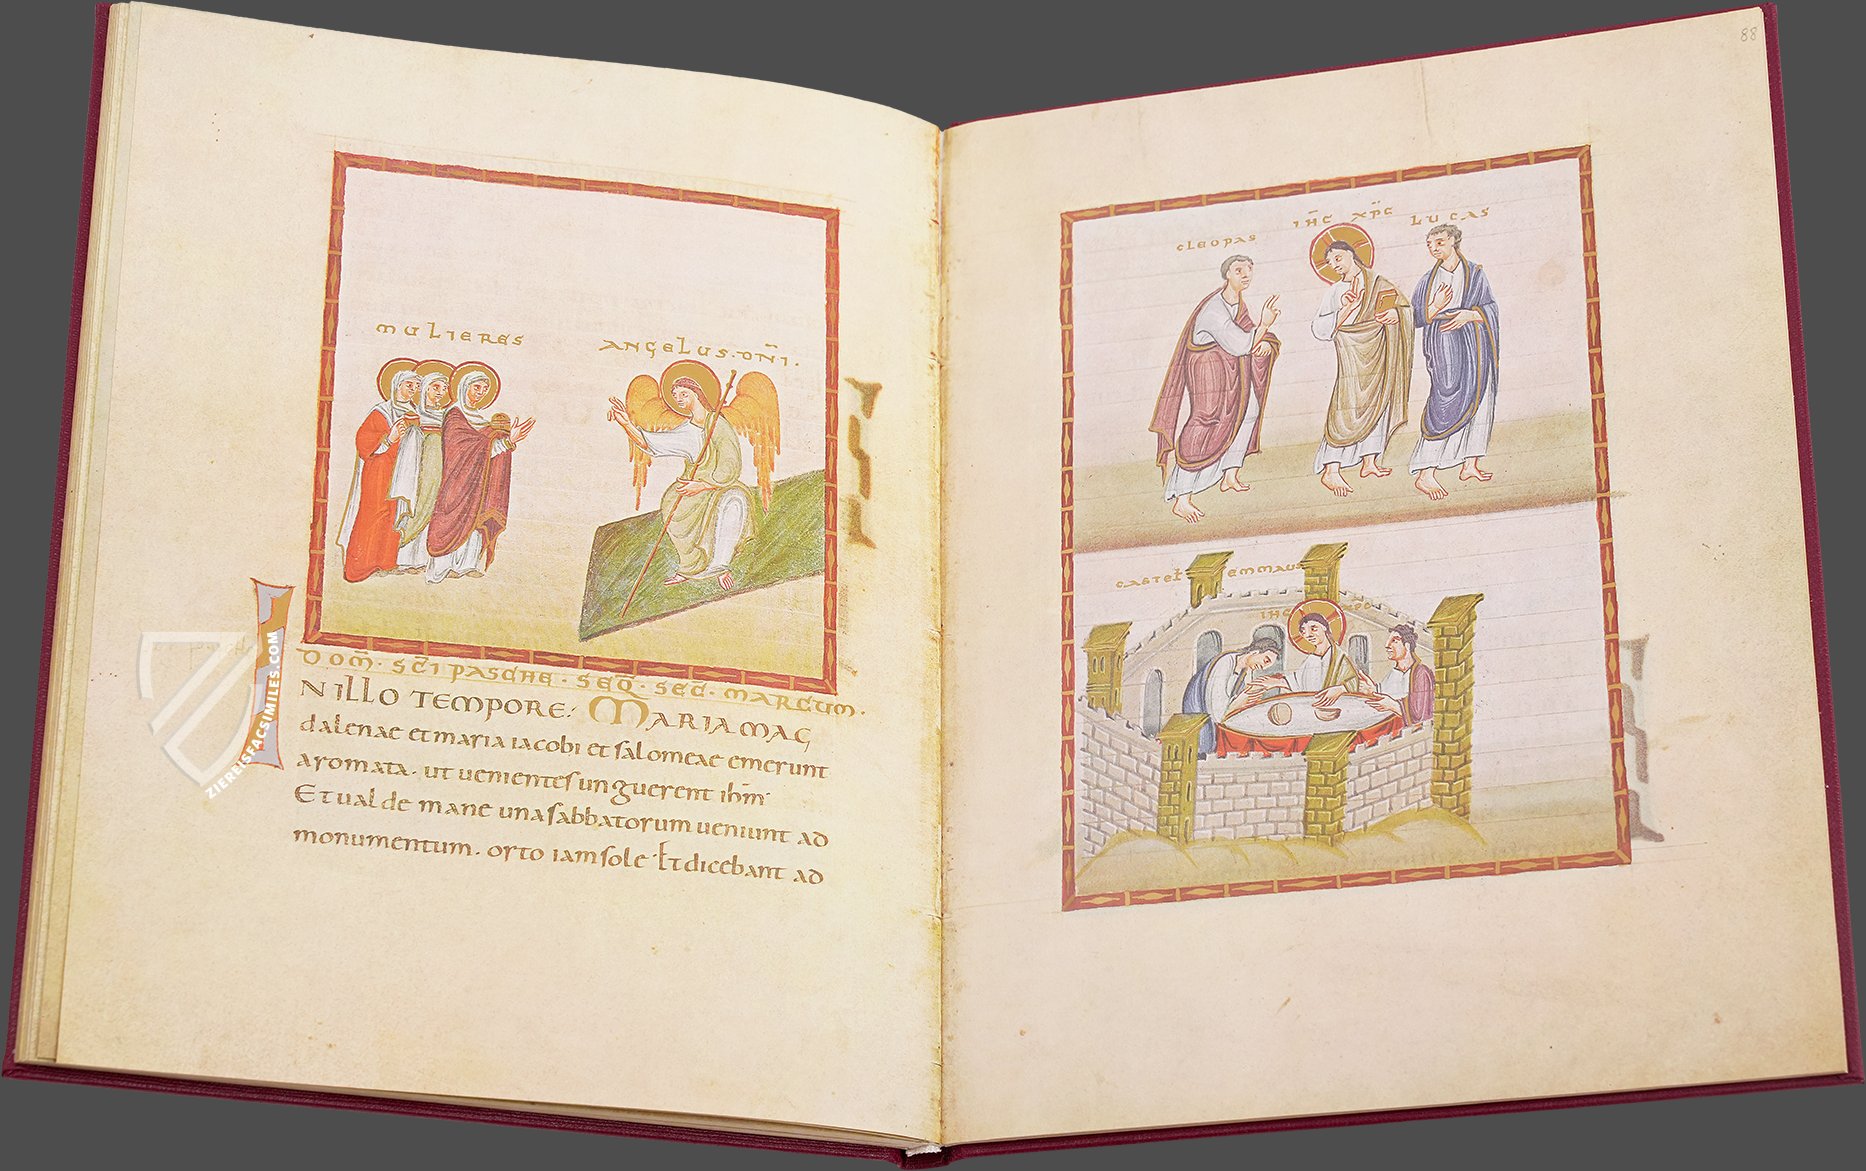 MULIERES
ANGELUS·DN̄I·
DOM̄·SC̄I PASCHE·SEQ̄·SEC·MARCUM·
IN ILLO TEMPORE; MARIA MAG
dalenae et maria iacobi et salomeae emerunt
aromata· ut uenientes unguerent ihm̄
Et ualde mane una sabbatorum ueniunt ad
monumentum· orto iam sole· Et dicebant ad
ZIEREISFACSIMILES.COM
88
CLEOPAS
IH̄C XP̄C
LUCAS
CASTEL EMMAUS
IH̄C XP̄C